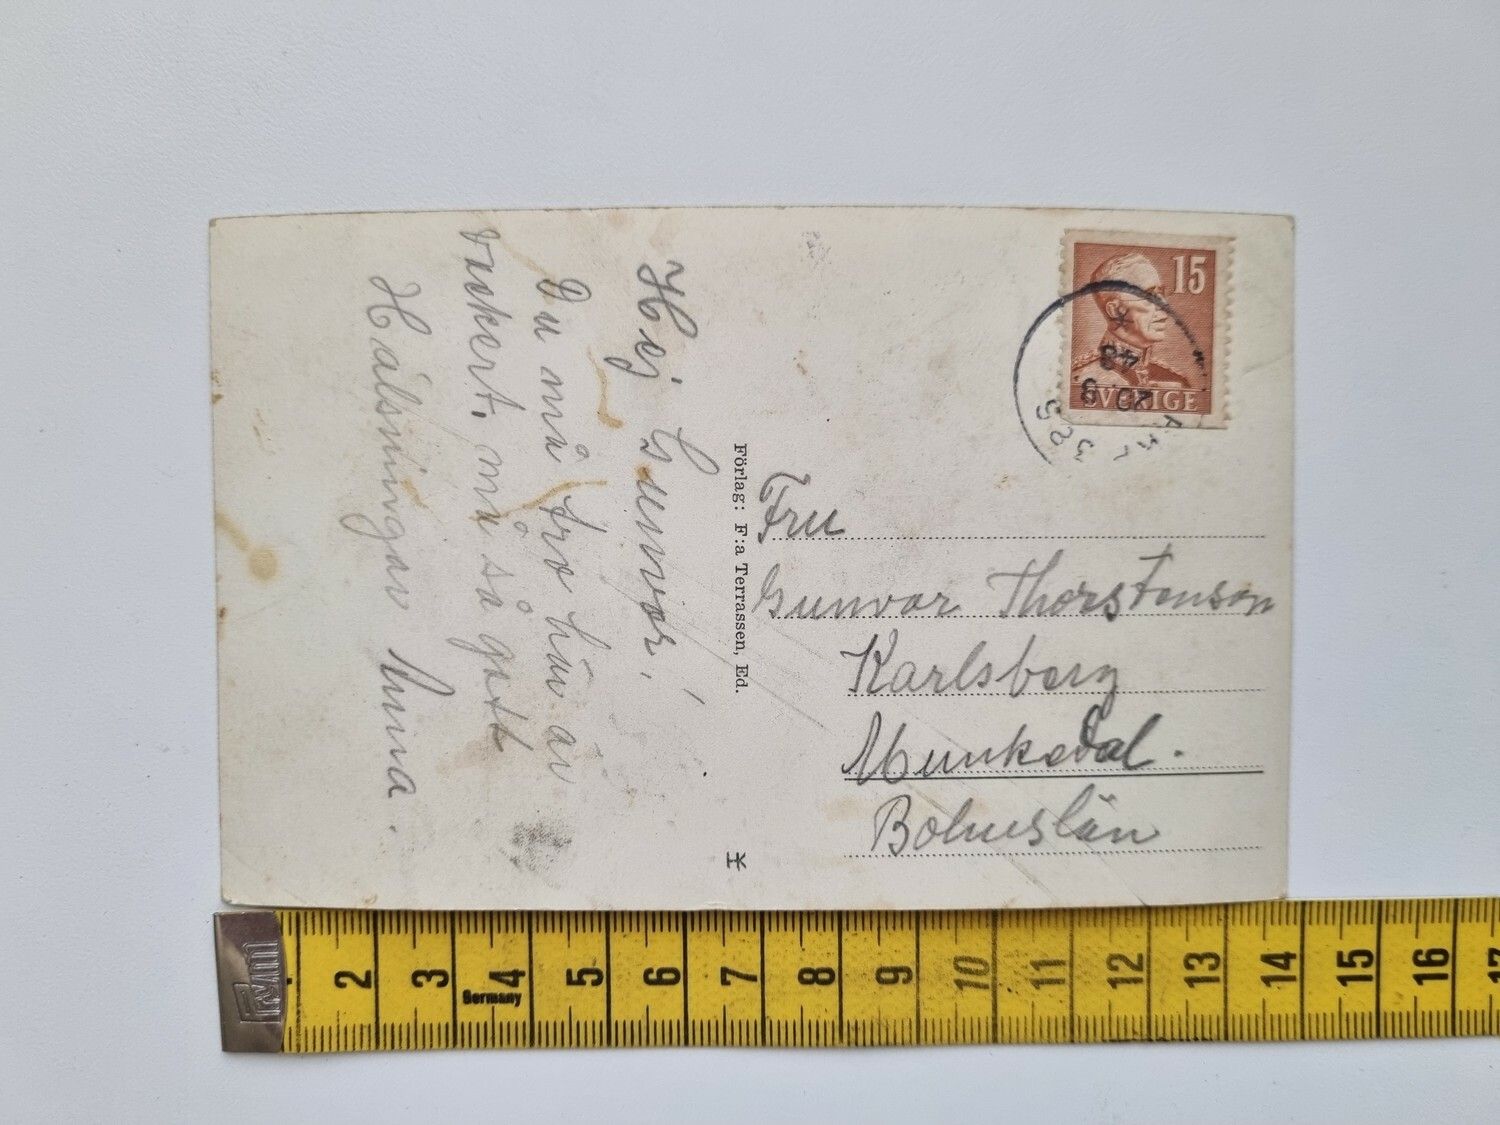 Hej Gunvor!
Du må tro här är
vackert, mn så gott
Hälsningar Anna.
Förlag: F:a Terrassen, Ed.
15
SVERIGE
20. 9
48
Fru
Gunvor Thorstenson
Karlsberg
Munkedal.
Bohuslän
2 3 4 5 6 7 8 9 10 11 12 13 14 15 16 17
Germany